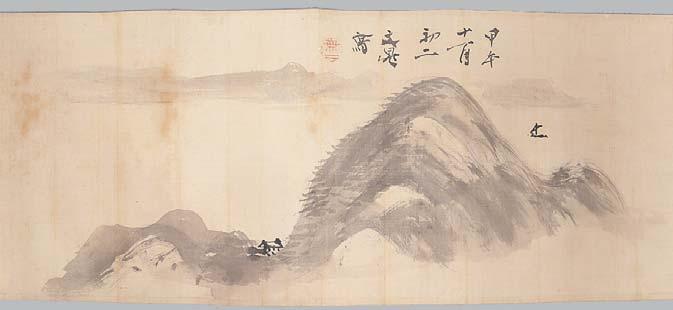 甲午
十一月
初二
文晁
寫